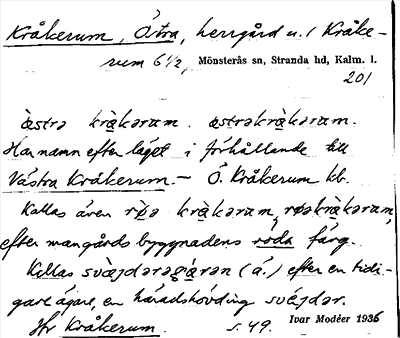 Kråkerum, Östra, herrgård u. / Kråke-
rum 6 1/2, Mönsterås sn, Stranda hd, Kalm. l.
201
àstra kràkarum. astrakràkarum.
Har namn efter läget i förhållande till
Västra Kråkerum. – Ö. Kråkerum kb.
Kallas även rø̀a kràkarum, røakràkarum,
efter mangårds byggnadens röda färg.
Kallas svæ̀jdaragáran (ä.) efter en tidi-
gare ägare, en häradshövding svéjdar.
Hr Kråkerum. s. 49. Ivar Modéer 1936